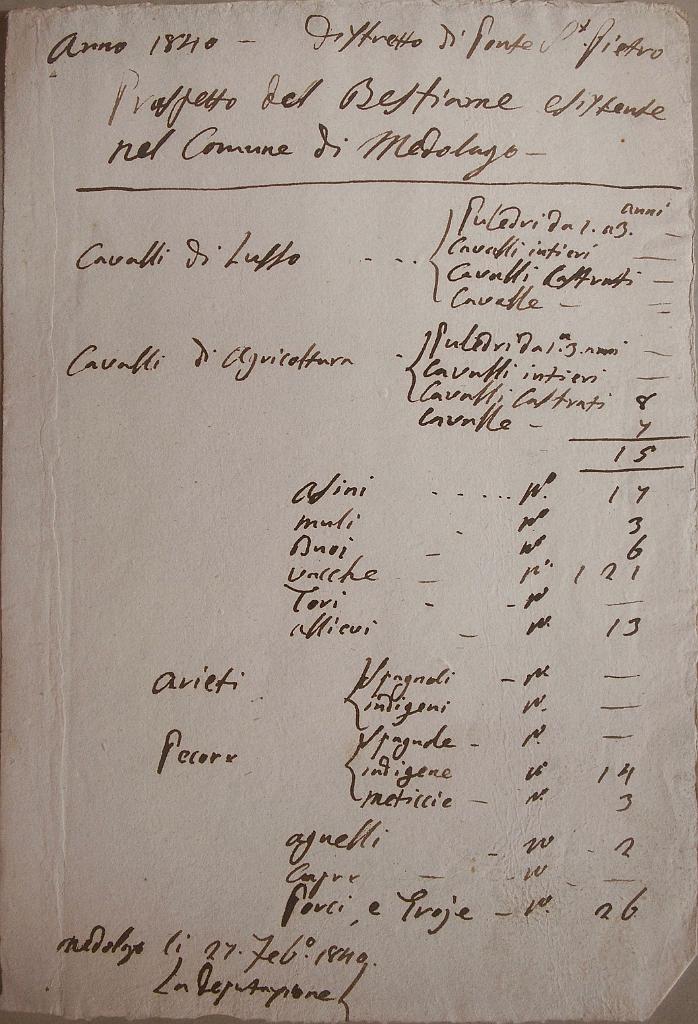 Anno 1840 - Distretto di Ponte St. Pietro
Prospetto del Bestiame esistente
nel Comune di Medolago -
anni
Puledri da 1. a 3. —
Cavalli di Lusso . . . Cavalli intieri —
Cavalli Castrati —
Cavalle — —
Puledri da 1. a 3. anni —
Cavalli di Agricoltura - Cavalli intieri —
Cavalli Castrati 8
Cavalle - 7
15
Asini . . . . . . N.° 17
Muli - N.° 3
Buoi - N.° 6
Vacche - N.° 121
Tori - - N. —
Allievi - N. 13
Arieti Spagnoli - N. —
indigeni N. —
Pecore Spagnole - N. —
indigene N. 14
meticcie - N. 3
agnelli - N. 2
Capre - N. —
Porci, e Troje - N. 26
Medolago li 27. Feb.° 1840.
La Deputazione